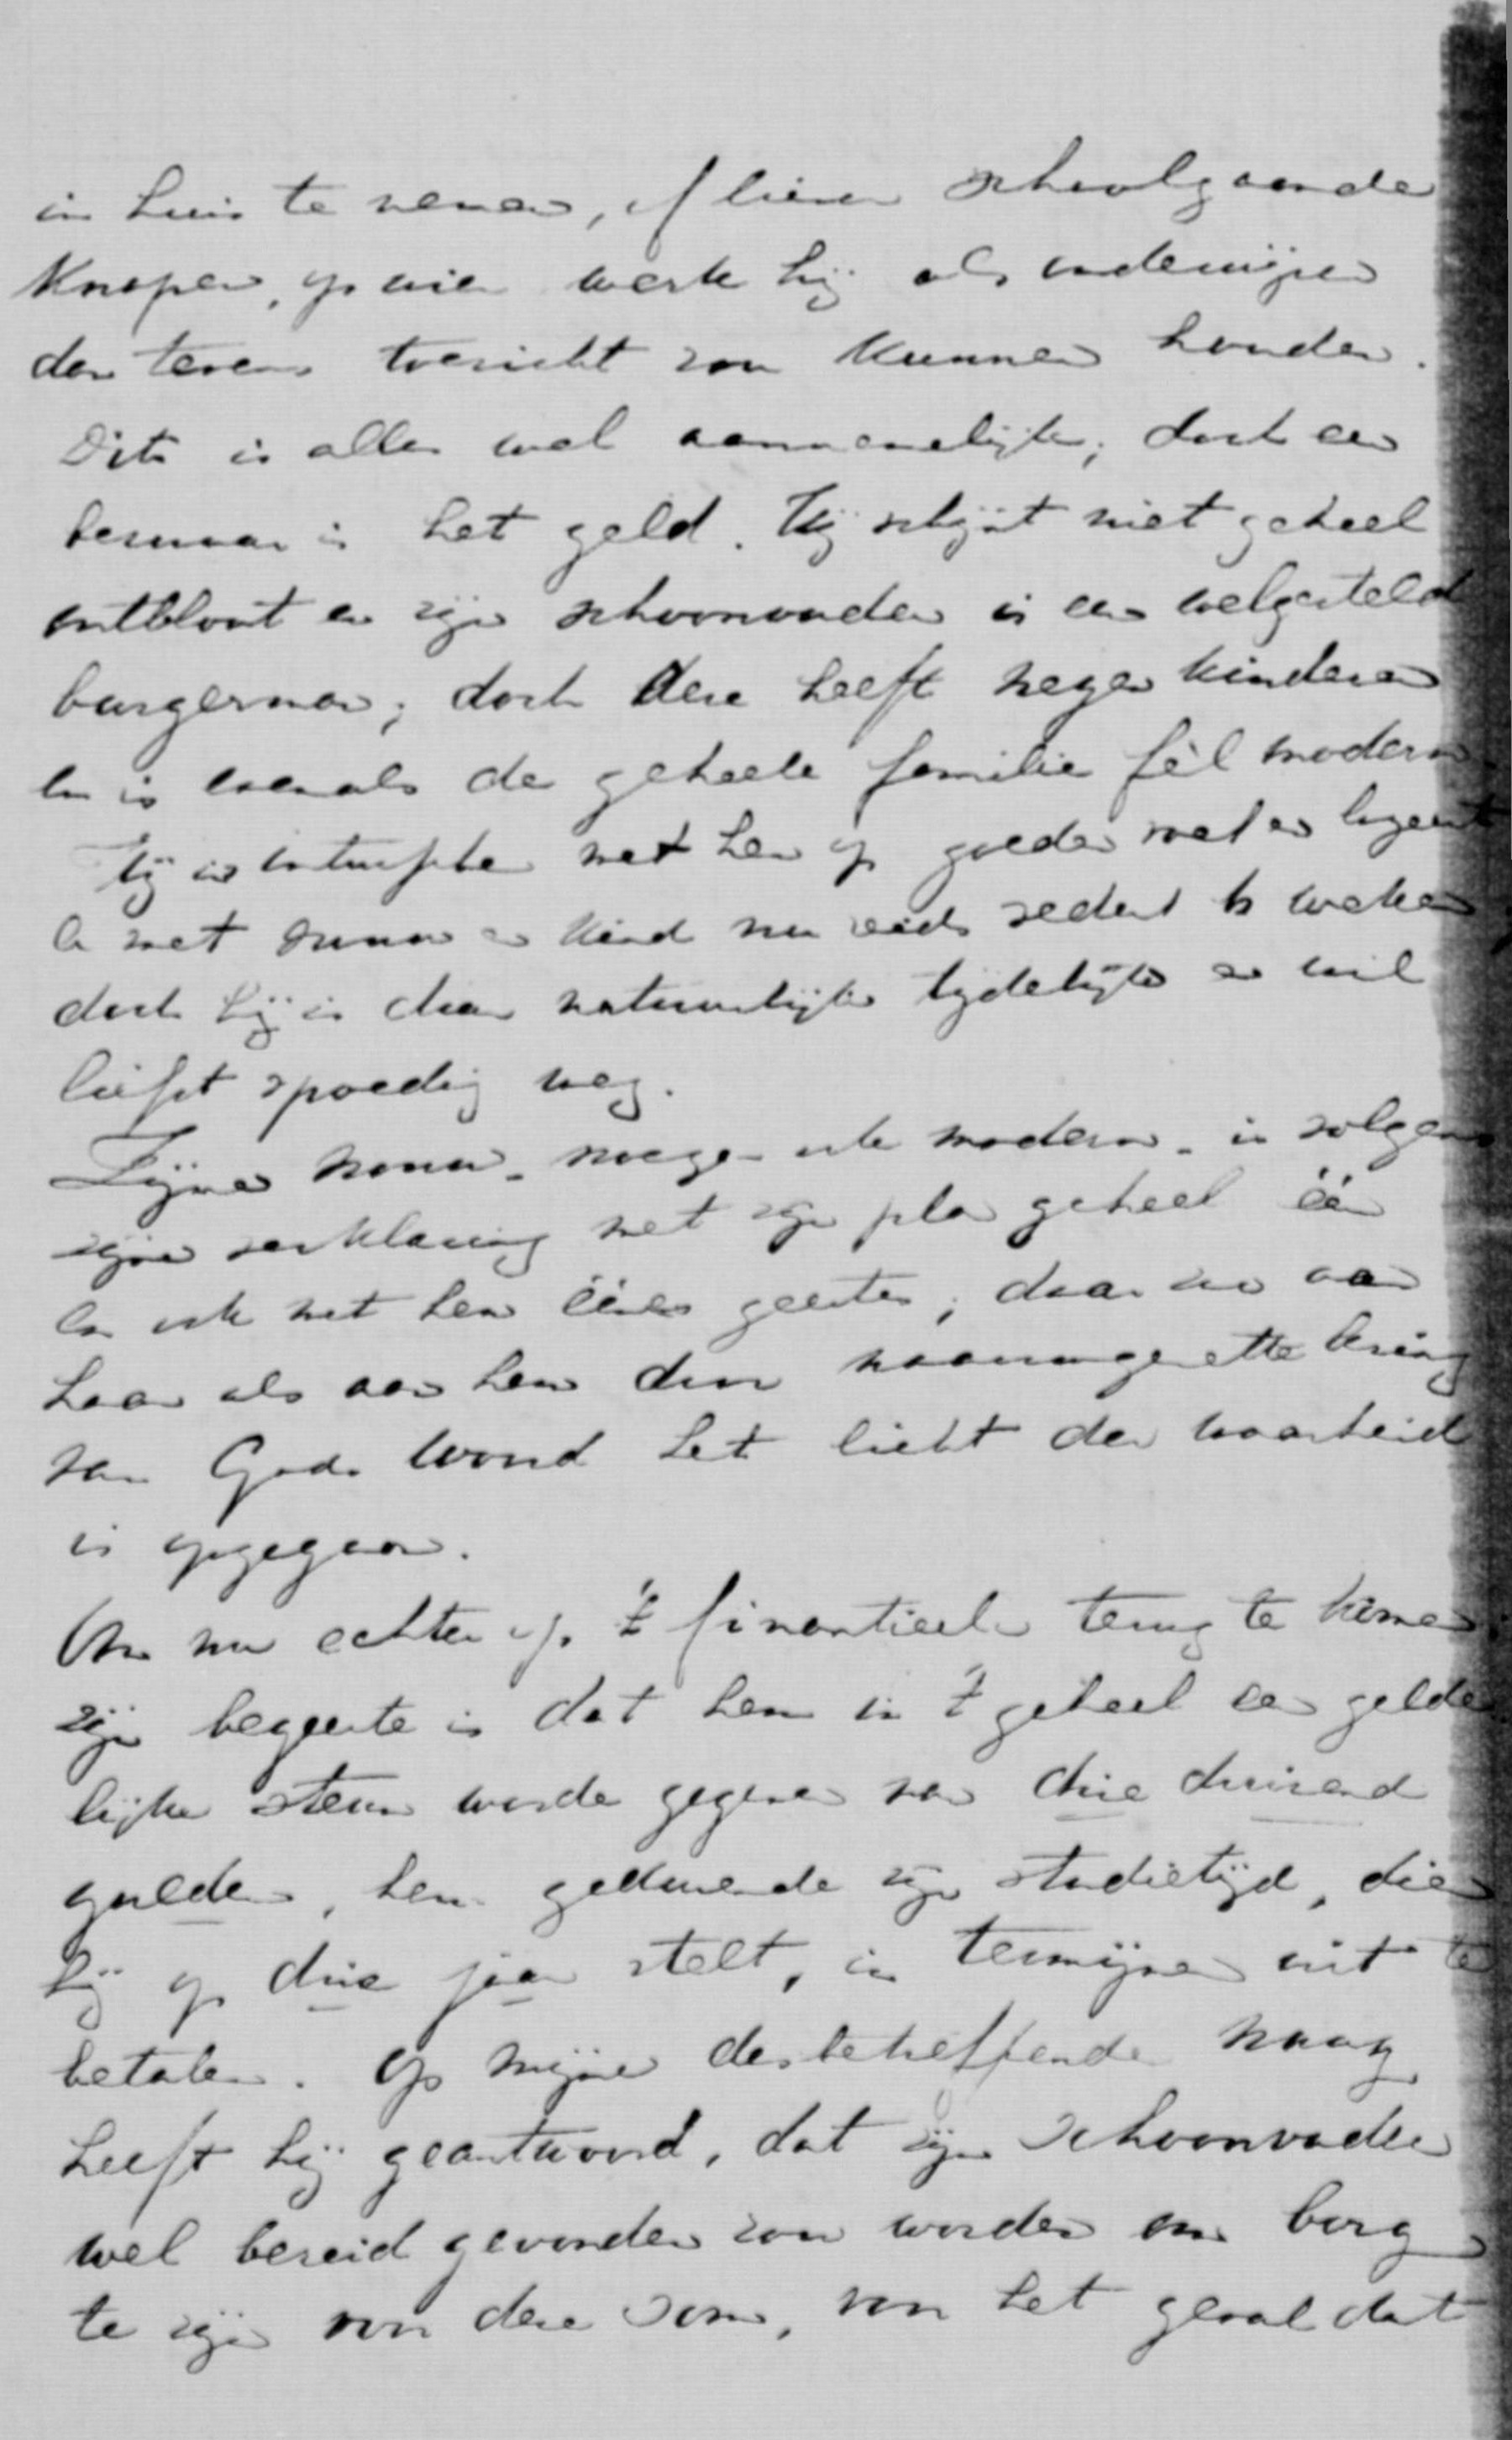 in huis te nemen, of liever schoolgaande
knapen, op wier werk hij als onderwijzer
dan tevens toezicht zou kunnen houden.
Dit is alles wel aannemelijk; doch een
bezwaar is het geld. Hij schijnt niet geheel
ontbloot en zijn schoonvader is een welgesteld
burgerman; doch deze heeft negen kinderen
en is evenals de geheele familie fèl modern.
Hij is intusschen met hen op goeden voet en logeert
er met vrouw en kind nu reeds sedert 6 weken
doch hij is daar natuurlijk tijdelijk en wil
liefst spoedig weg.
Zijne vrouw - vroeger ook modern - is volgens
zijne verklaring met zijn plan geheel één
en ook met hem ééns geestes, daar zoo aan
haar als aan hem door lezing
van Gods Woord het licht der waarheid
is opgegaan.
Om nu echter op 't financieele terug te komen
zijn begeerte is dat hem in 't geheel een gelde
lijke steun worde gegeven van drie duizend
gulden, hem gedurende zijn studietijd, dien
hij op drie jaar stelt, in termijnen uit te
betalen. Op mijne desbetreffende vraag
heeft hij geantwoord, dat zijn schoonvader
wel bereid gevonden zou worden om borg
te zijn voor deze som, voor het geval dat